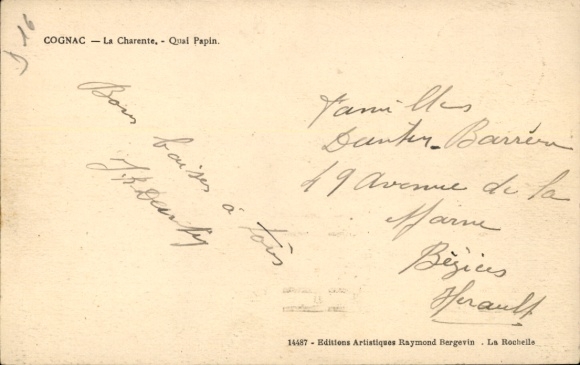 J 16
COGNAC — La Charente. - Quai Papin.
Bons
baisers à tous
J.P. Dantin
Familles
Dantin-Barrère
49 Avenue de la
Marne
Béziers
Herault
14487 - Editions Artistiques Raymond Bergevin . La Rochelle